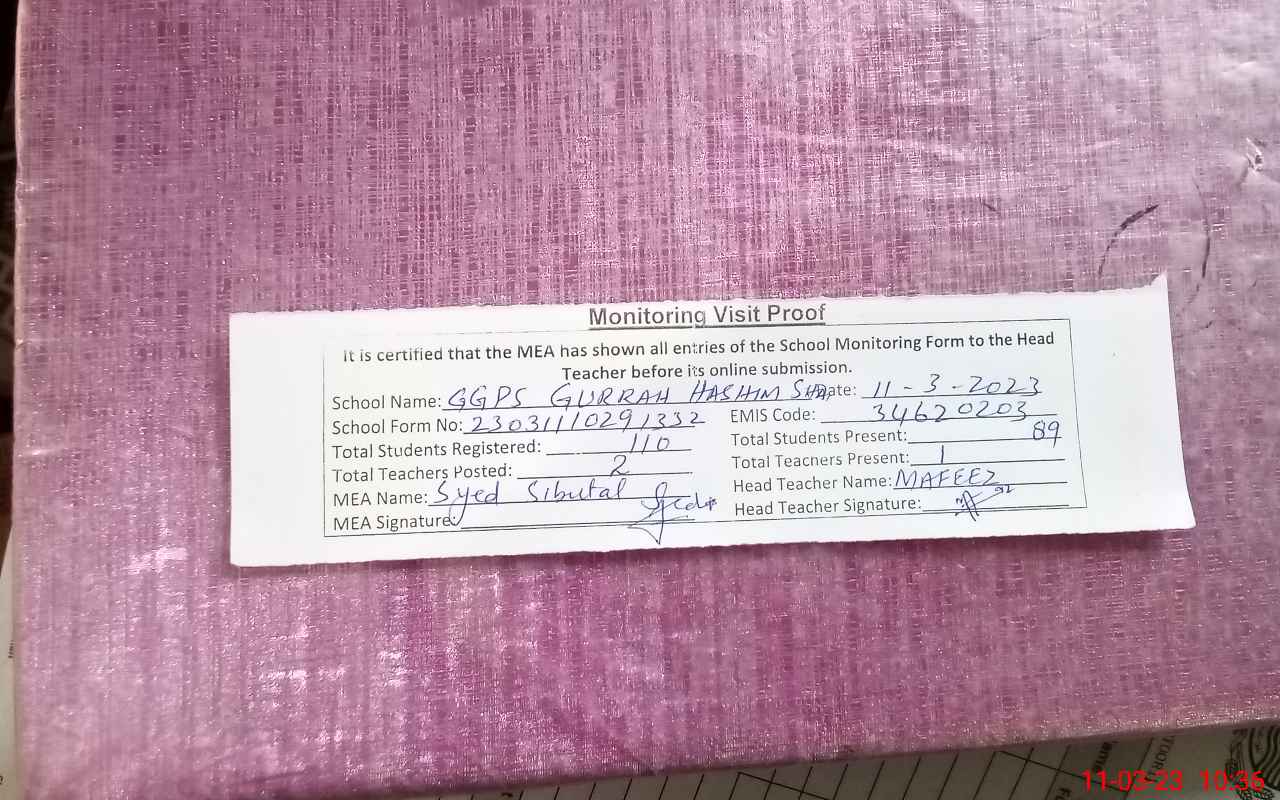 Monitoring Visit Proof
It is certified that the MEA has shown all entries of the School Monitoring Form to the Head
Teacher before its online submission.
School Name: GGPS GURRAH HASHIM SHA Date: 11-3-2023
School Form No: 23031110291332 EMIS Code: 34620203
Total Students Registered: 110 Total Students Present: 89
Total Teachers Posted: 2 Total Teachers Present: 1
MEA Name: Syed Sibutal Head Teacher Name: MAFEEZ
MEA Signature: Head Teacher Signature:
11-03-23 10:36